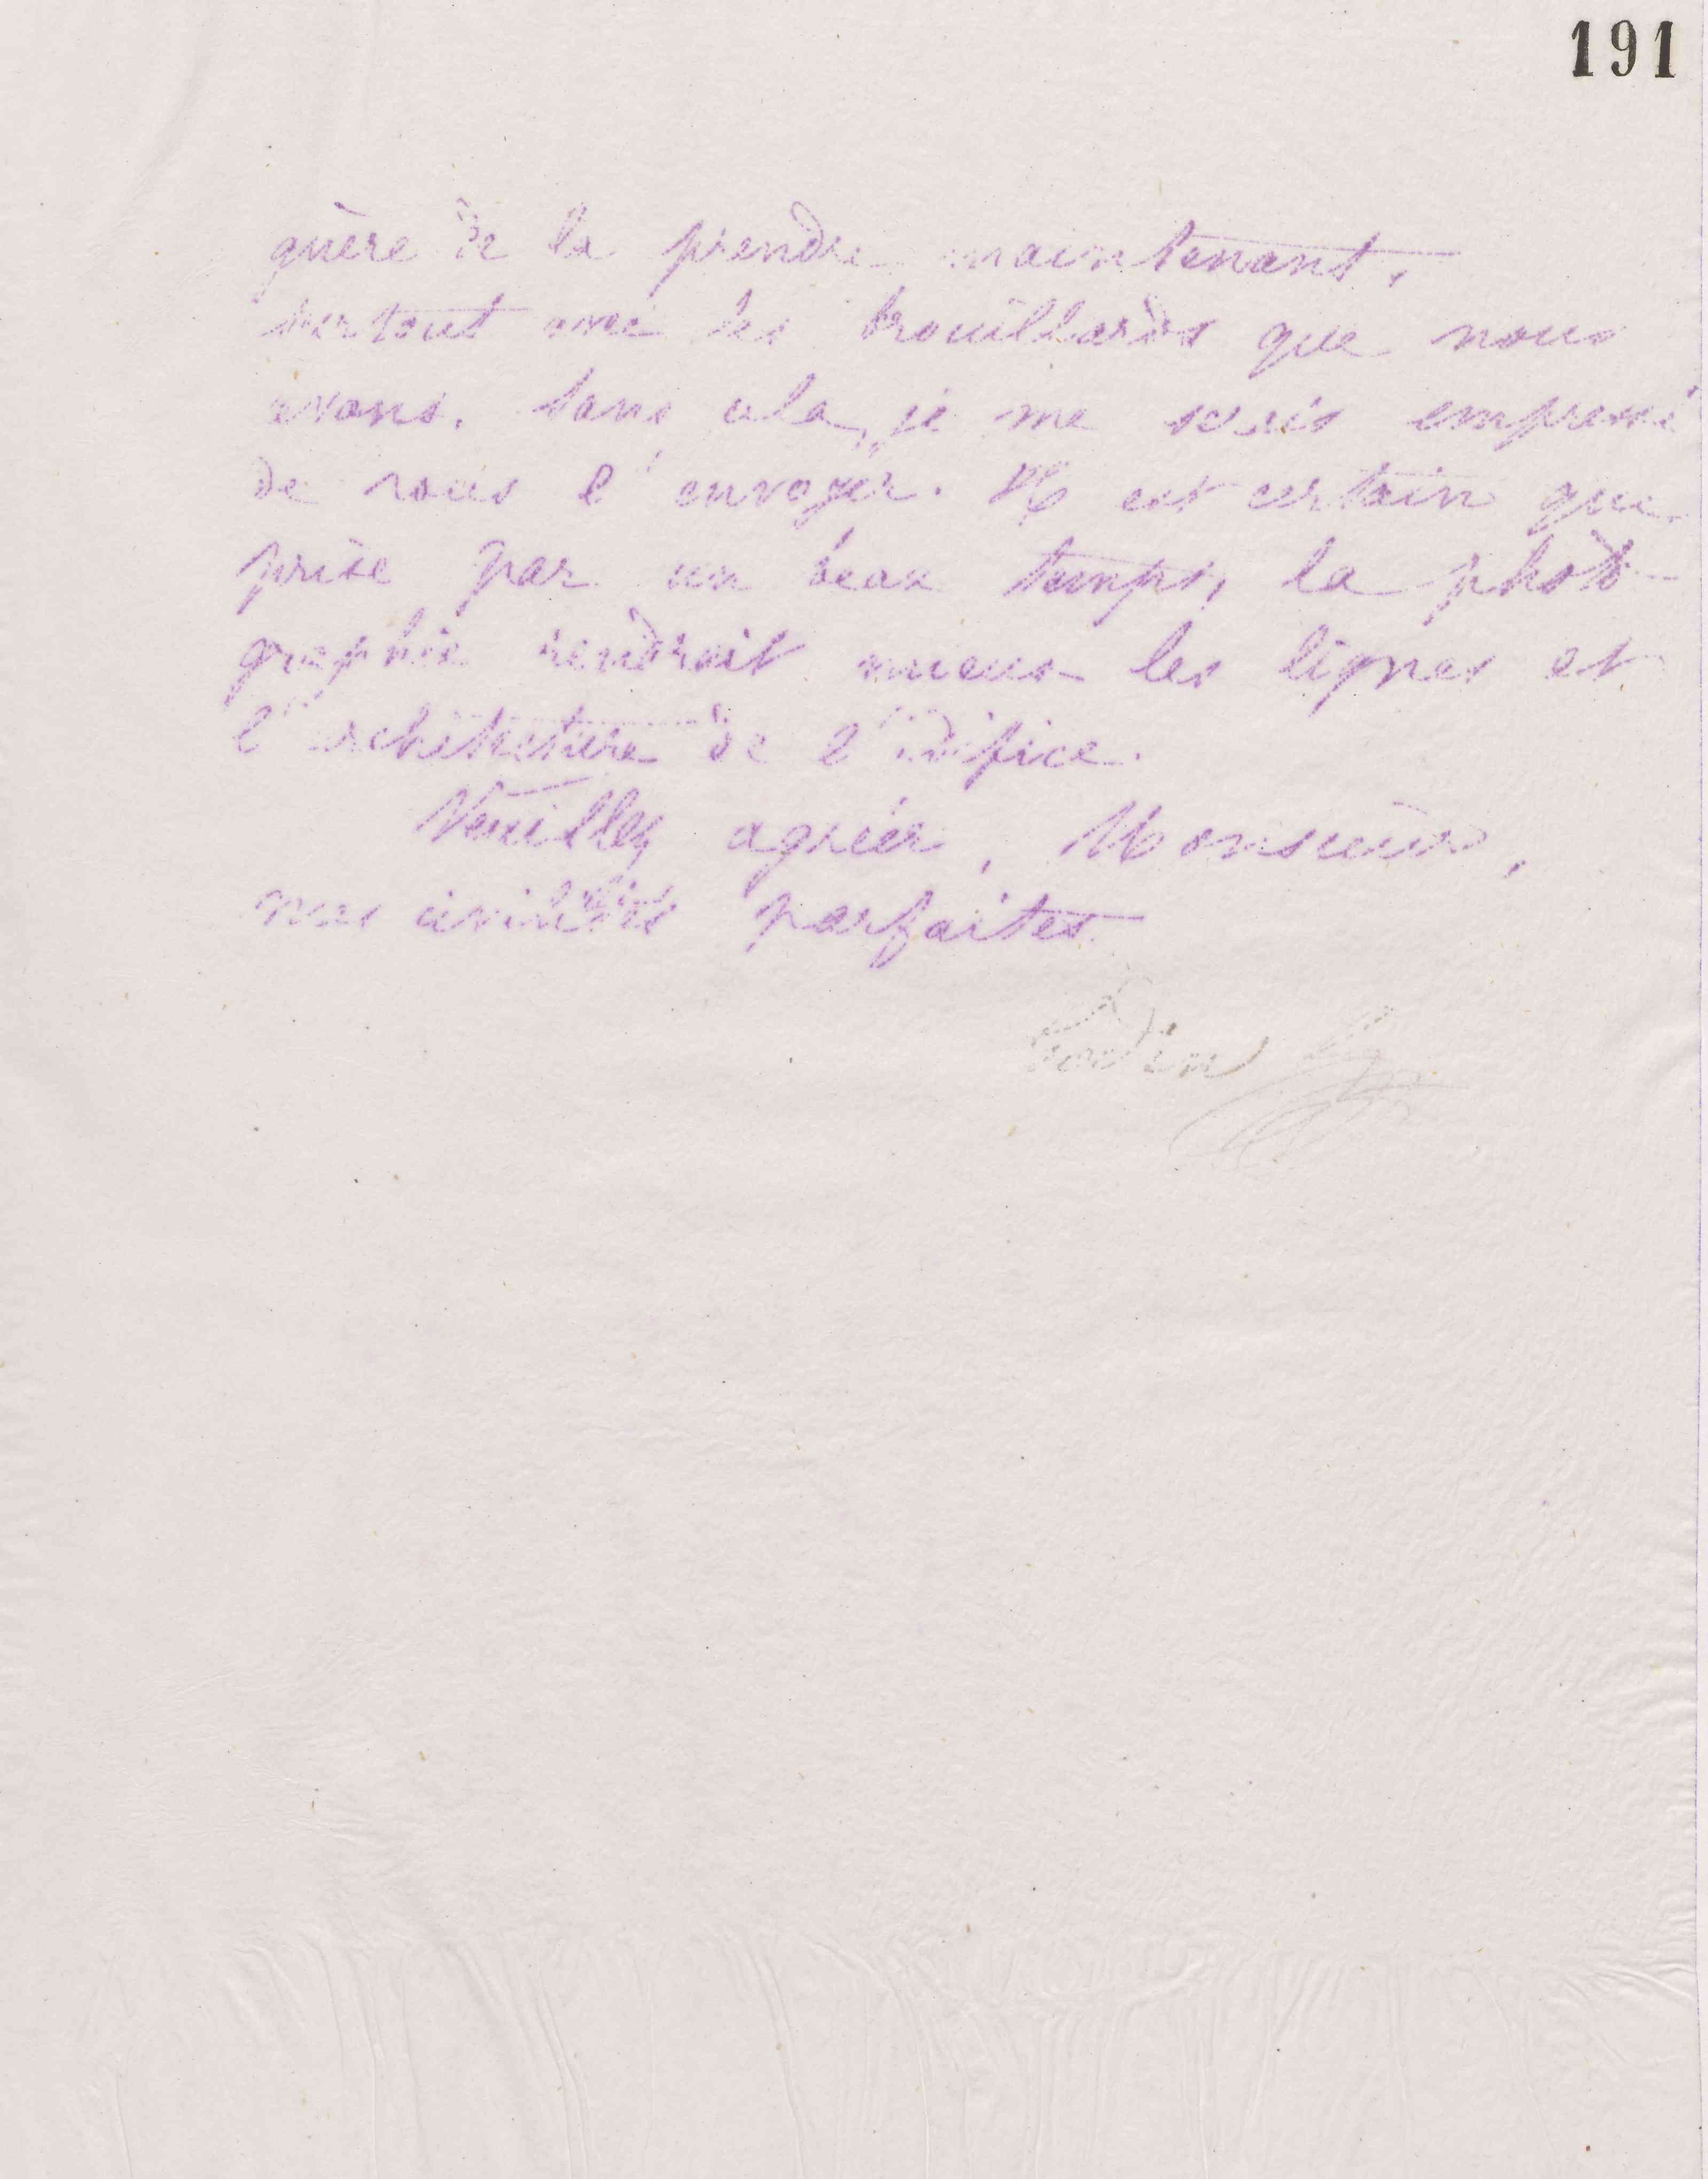 191
guère de la prendre maintenant,
surtout avec les brouillards que nous
avons. Sans cela, je me serais empressé
de vous l'envoyer. Il est certain que
prise par un beau temps, la photo-
graphie rendrait mieux les lignes et
l'architecture de l'édifice.
Veuillez agréer, Monsieur,
mes civilités parfaites.
Godin